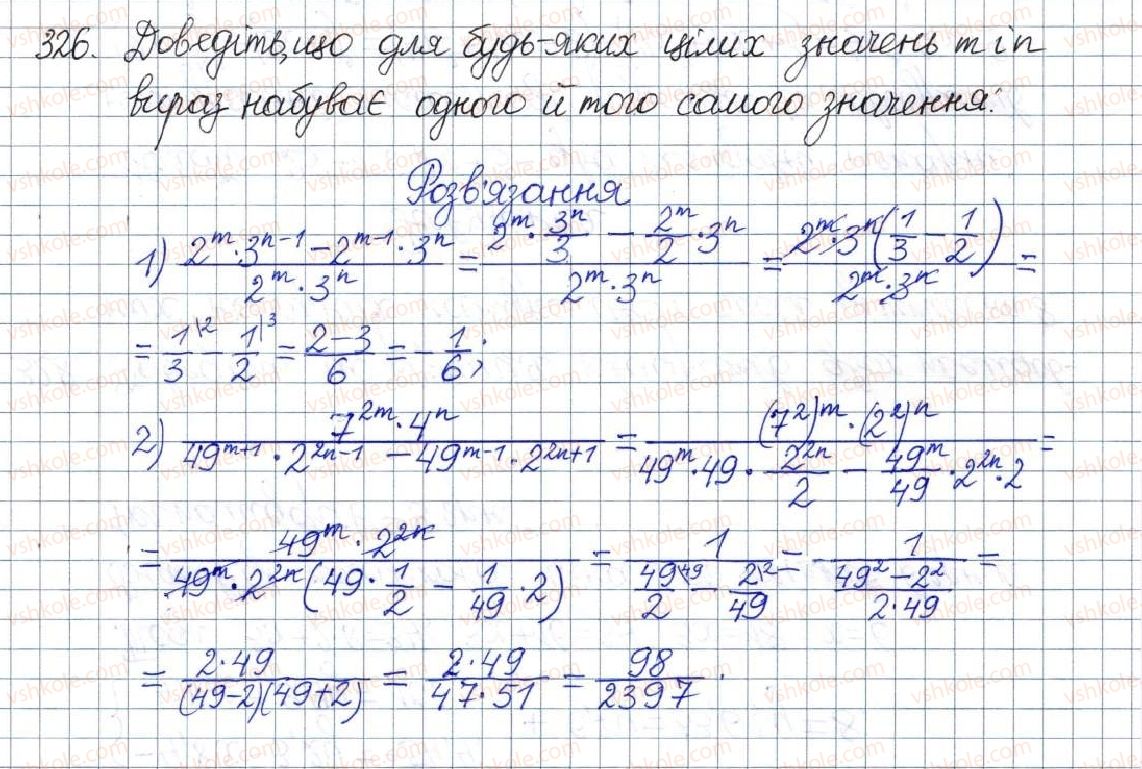 326. Доведіть, що для будь-яких цілих значень m і n
вираз набуває одного й того самого значення:
Розв'язання
1) (2^m·3^(n-1) - 2^(m-1)·3^n)/(2^m·3^n) = (2^m·3^n/3 - 2^m/2·3^n)/(2^m·3^n) = (2^m·3^n(1/3 - 1/2))/(2^m·3^n) =
= 1/3\2 - 1/2\3 = (2-3)/6 = -1/6;
2) (7^(2m)·4^n)/(49^(m+1)·2^(2n-1) - 49^(m-1)·2^(2n+1)) = ((7^2)^m·(2^2)^n)/(49^m·49·2^(2n)/2 - 49^m/49·2^(2n)·2) =
= (49^m·2^(2n))/(49^m·2^(2n)(49·1/2 - 1/49·2)) = 1/(49\49/2 - 2\2/49) = - 1/((49^2-2^2)/(2·49)) =
= (2·49)/((49-2)(49+2)) = (2·49)/(47·51) = 98/2397.
vshkole.com